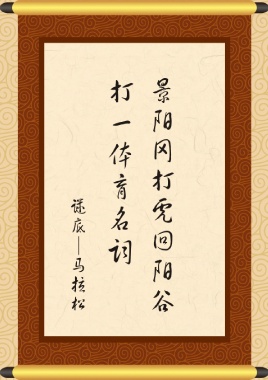 景阳冈打虎回阳谷
打一体育名词
谜底——马拉松